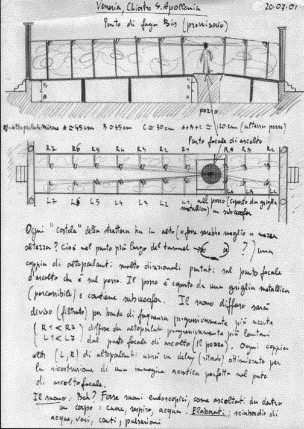 Venezia, Chiostro S. Apollonia 20.07.01
Punto di fuga Bis (provvisorio)
pozzo
A ≃ 45 cm B ≃ 45 cm C ≃ 30 cm A+B+C ≃ 120 cm (altezza pozzo)
Punto focale di ascolto
R7 R6 R5 R4 R3 R2 R1
L7 L6 L5 L4 L3 L2 L1 nel pozzo (coperto da griglia
metallica) un subwoofer
Ogni "costola" della struttura ha in alto (o forse sarebbe meglio a mezza
altezza? Cioè nel punto più largo del tunnel ?) una
coppia di altoparlanti molto direzionali puntati sul punto focale
d'ascolto che è sul pozzo. Il pozzo è coperto da una griglia metallica
(percorribile) e contiene subwoofer. Il suono diffuso sarà
diviso (filtrato) per bande di frequenza progressivamente più acute
(R1 < R7 / L1 < L7) diffuse da altoparlanti progressivamente più lontani
dal punto focale di ascolto (il pozzo). Ogni coppia
(L, R) di altoparlanti avrà un delay (ritardo) ottimizzato per
la ricostruzione di una immagine acustica perfetta nel punto
di ascolto focale.
Il suono. Boh? Forse suoni endoscopici, come ascoltati da dentro
un corpo: cuore, respiro, acqua. Elaborati, sciabordio di
acqua, voci, canti, pulsazioni